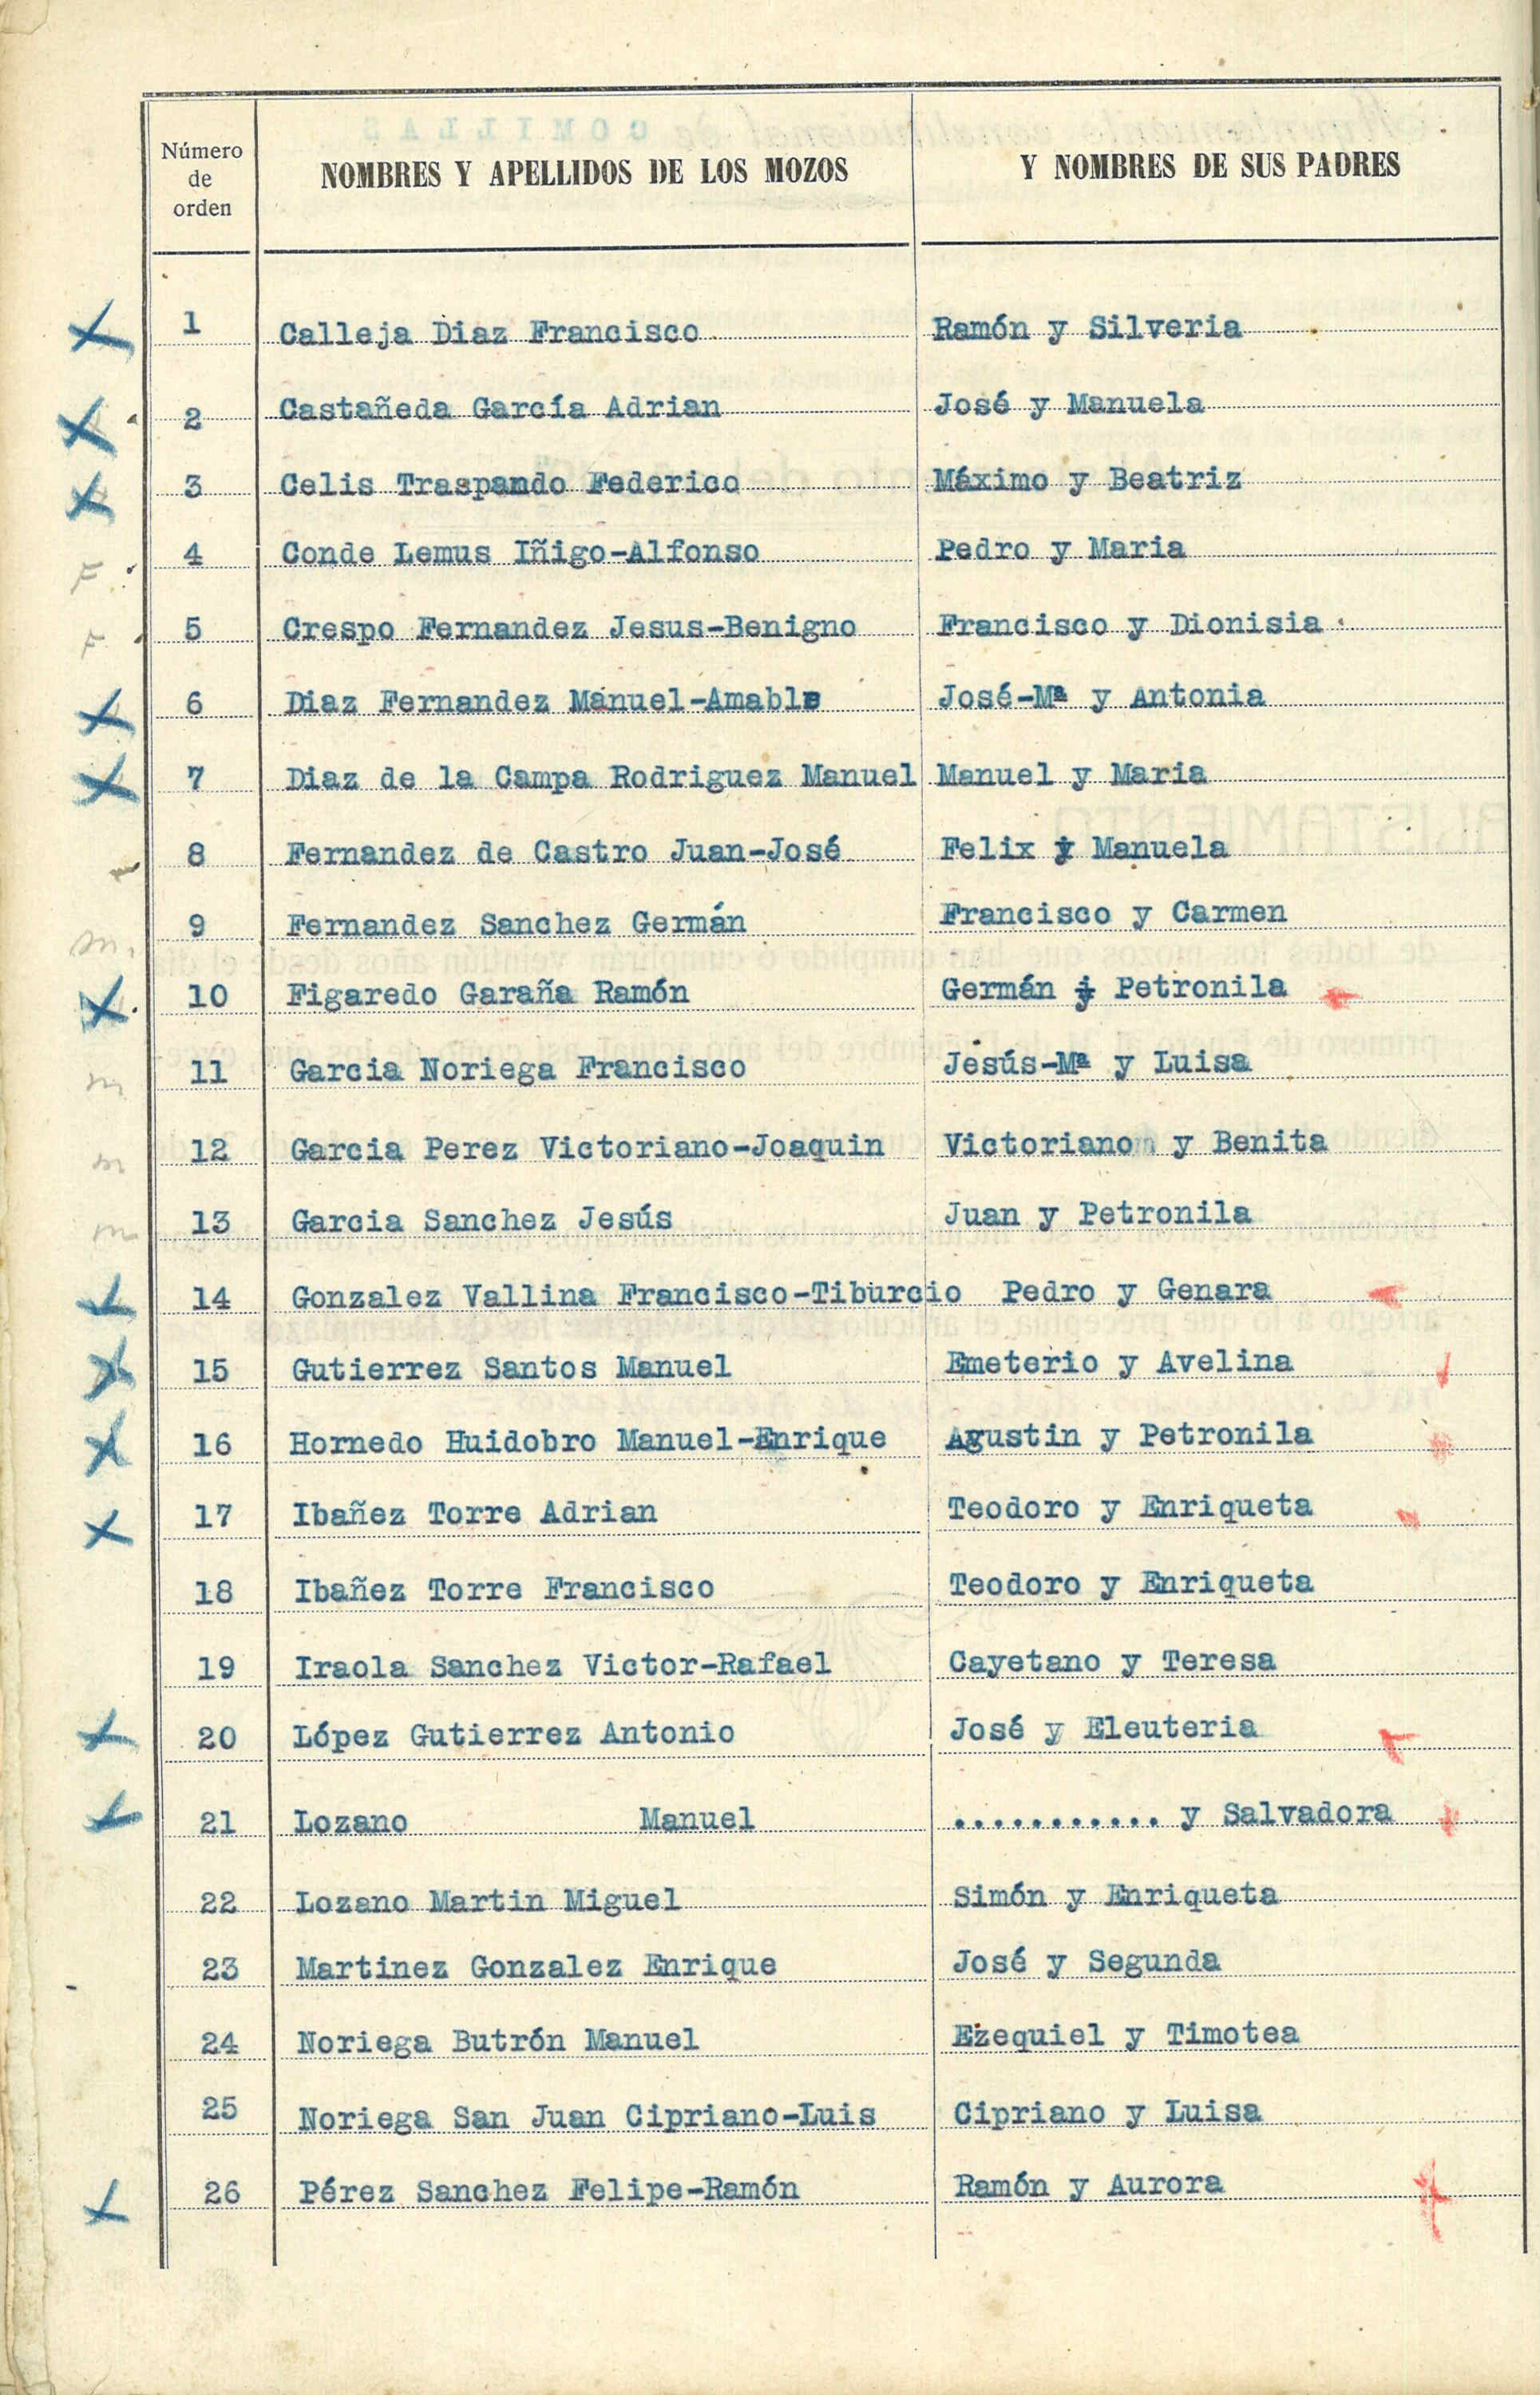 COMILLAS
Número
de
orden
NOMBRES Y APELLIDOS DE LOS MOZOS
Y NOMBRES DE SUS PADRES
1 Calleja Diaz Francisco Ramón y Silveria
2 Castañeda García Adrian José y Manuela
3 Celis Traspando Federico Máximo y Beatriz
F 4 Conde Lemus Iñigo-Alfonso Pedro y Maria
F 5 Crespo Fernandez Jesus-Benigno Francisco y Dionisia
6 Diaz Fernandez Manuel-Amable José-Mª y Antonia
7 Diaz de la Campa Rodriguez Manuel Manuel y Maria
8 Fernandez de Castro Juan-José Felix y Manuela
m. 9 Fernandez Sanchez Germán Francisco y Carmen
10 Figaredo Garaña Ramón Germán y Petronila
m 11 Garcia Noriega Francisco Jesús-Mª y Luisa
m 12 Garcia Perez Victoriano-Joaquin Victoriano y Benita
m 13 Garcia Sanchez Jesús Juan y Petronila
14 Gonzalez Vallina Francisco-Tiburcio Pedro y Genara
15 Gutierrez Santos Manuel Emeterio y Avelina
16 Hornedo Huidobro Manuel-Enrique Agustin y Petronila
17 Ibañez Torre Adrian Teodoro y Enriqueta
18 Ibañez Torre Francisco Teodoro y Enriqueta
19 Iraola Sanchez Victor-Rafael Cayetano y Teresa
20 López Gutierrez Antonio José y Eleuteria
21 Lozano Manuel ........... y Salvadora
22 Lozano Martin Miguel Simón y Enriqueta
23 Martinez Gonzalez Enrique José y Segunda
24 Noriega Butrón Manuel Ezequiel y Timotea
25 Noriega San Juan Cipriano-Luis Cipriano y Luisa
26 Pérez Sanchez Felipe-Ramón Ramón y Aurora